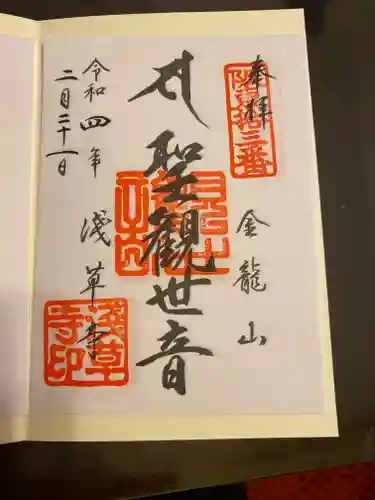 奉拝
金龍山
聖観世音
浅草寺
令和四年
二月二十一日
浅草
寺印